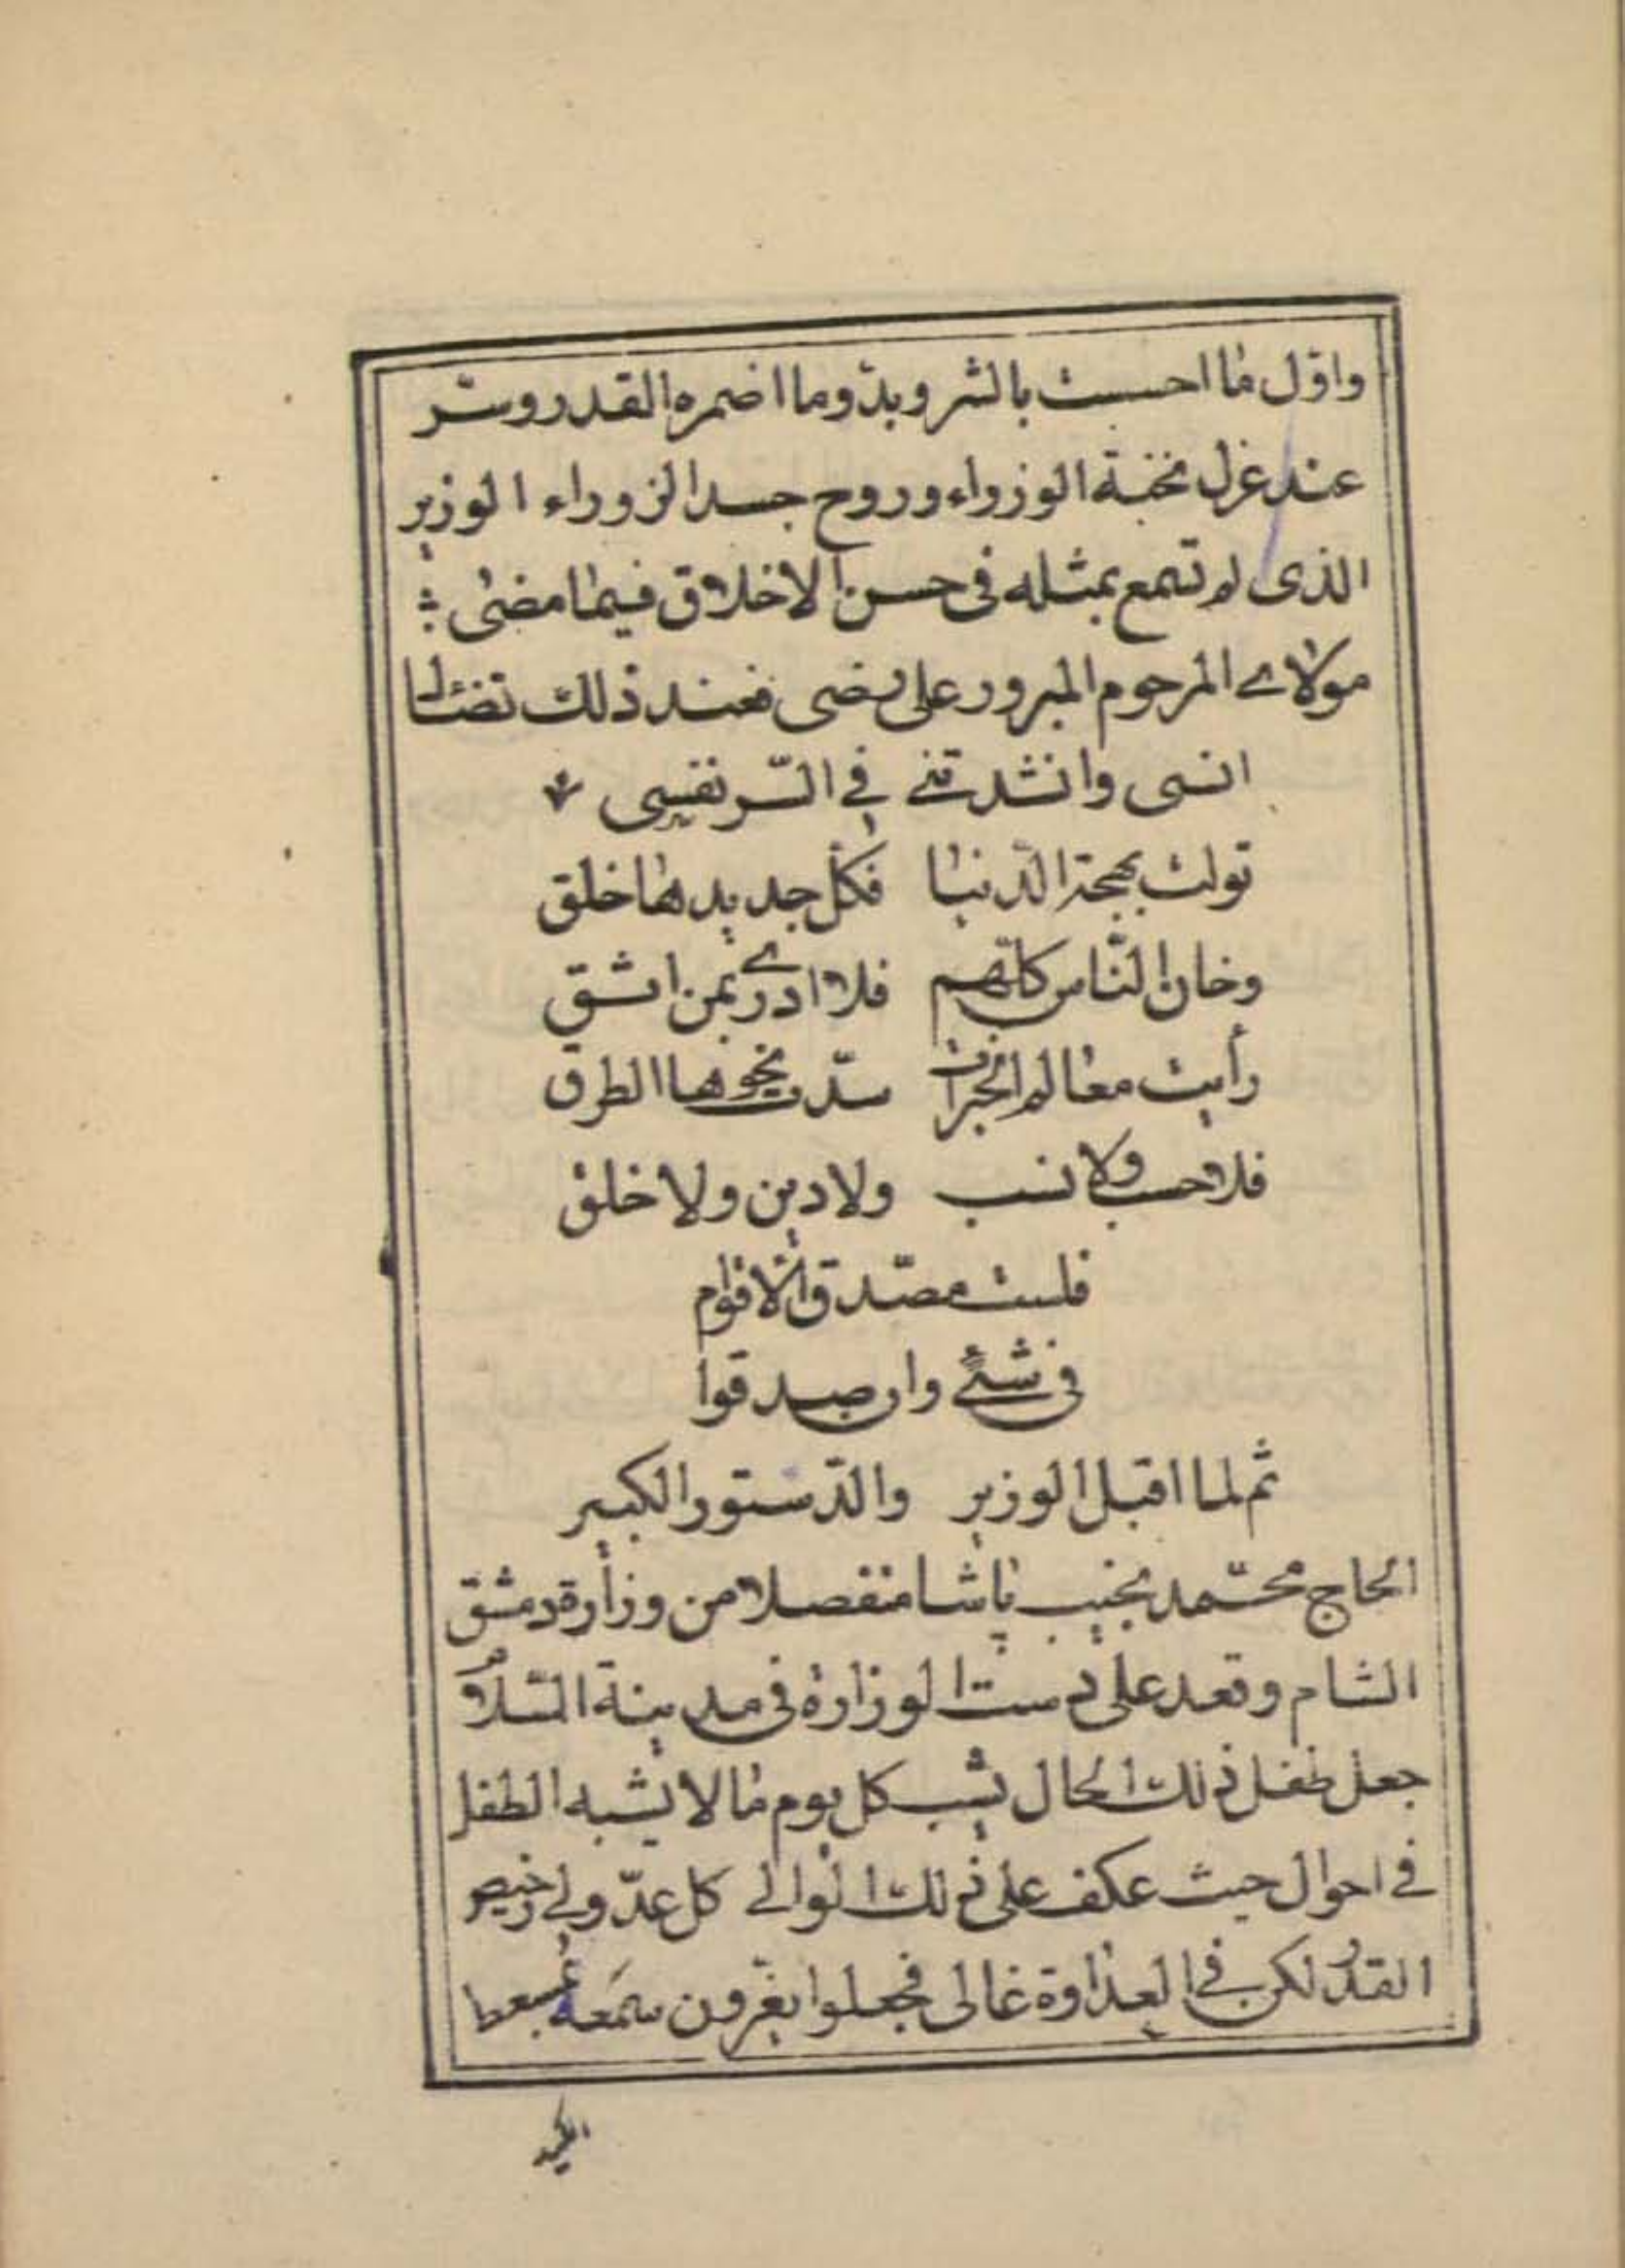 واوّل ما احسست بالشر وبدّو ما اضمره القدر وستّر
عند عزل نخبة الوزراء وروح جسد الزوراء الوزير
الذى لم تسمع بمثله فى حسن الاخلاق فيما مضى ؛
مولاى المرحوم المبرور على رضى فعند ذلك تضائل
انسى وانشدتنى في السّر نفسى
تولت بهجة الدّنيا فكل جديدها خلق
وخان النّاس كلّهم فلا ادرى بمن اثق
رأيت معالم الخيرات سدّت نحوها الطرق
فلا حسب ولا نسب ولا دين ولا خلق
فلست مصدّق الاقوام
فى شئ وان صدقوا
ثم لما اقبل الوزير والدّستور الكبير
الحاج محمّد نجيب باشا منفصلا من وزارة دمشق
الشام وقعد على دست الوزارة فى مدينة السّلام
جعل طفل ذلك الحال يشب كل يوم ما لا يشبه الطفل
في احوال حيث عكف على ذلك الوالى كل عدّو لى رخيص
القدر لكن في العداوة غالى فجعلوا يغرّون سمعه